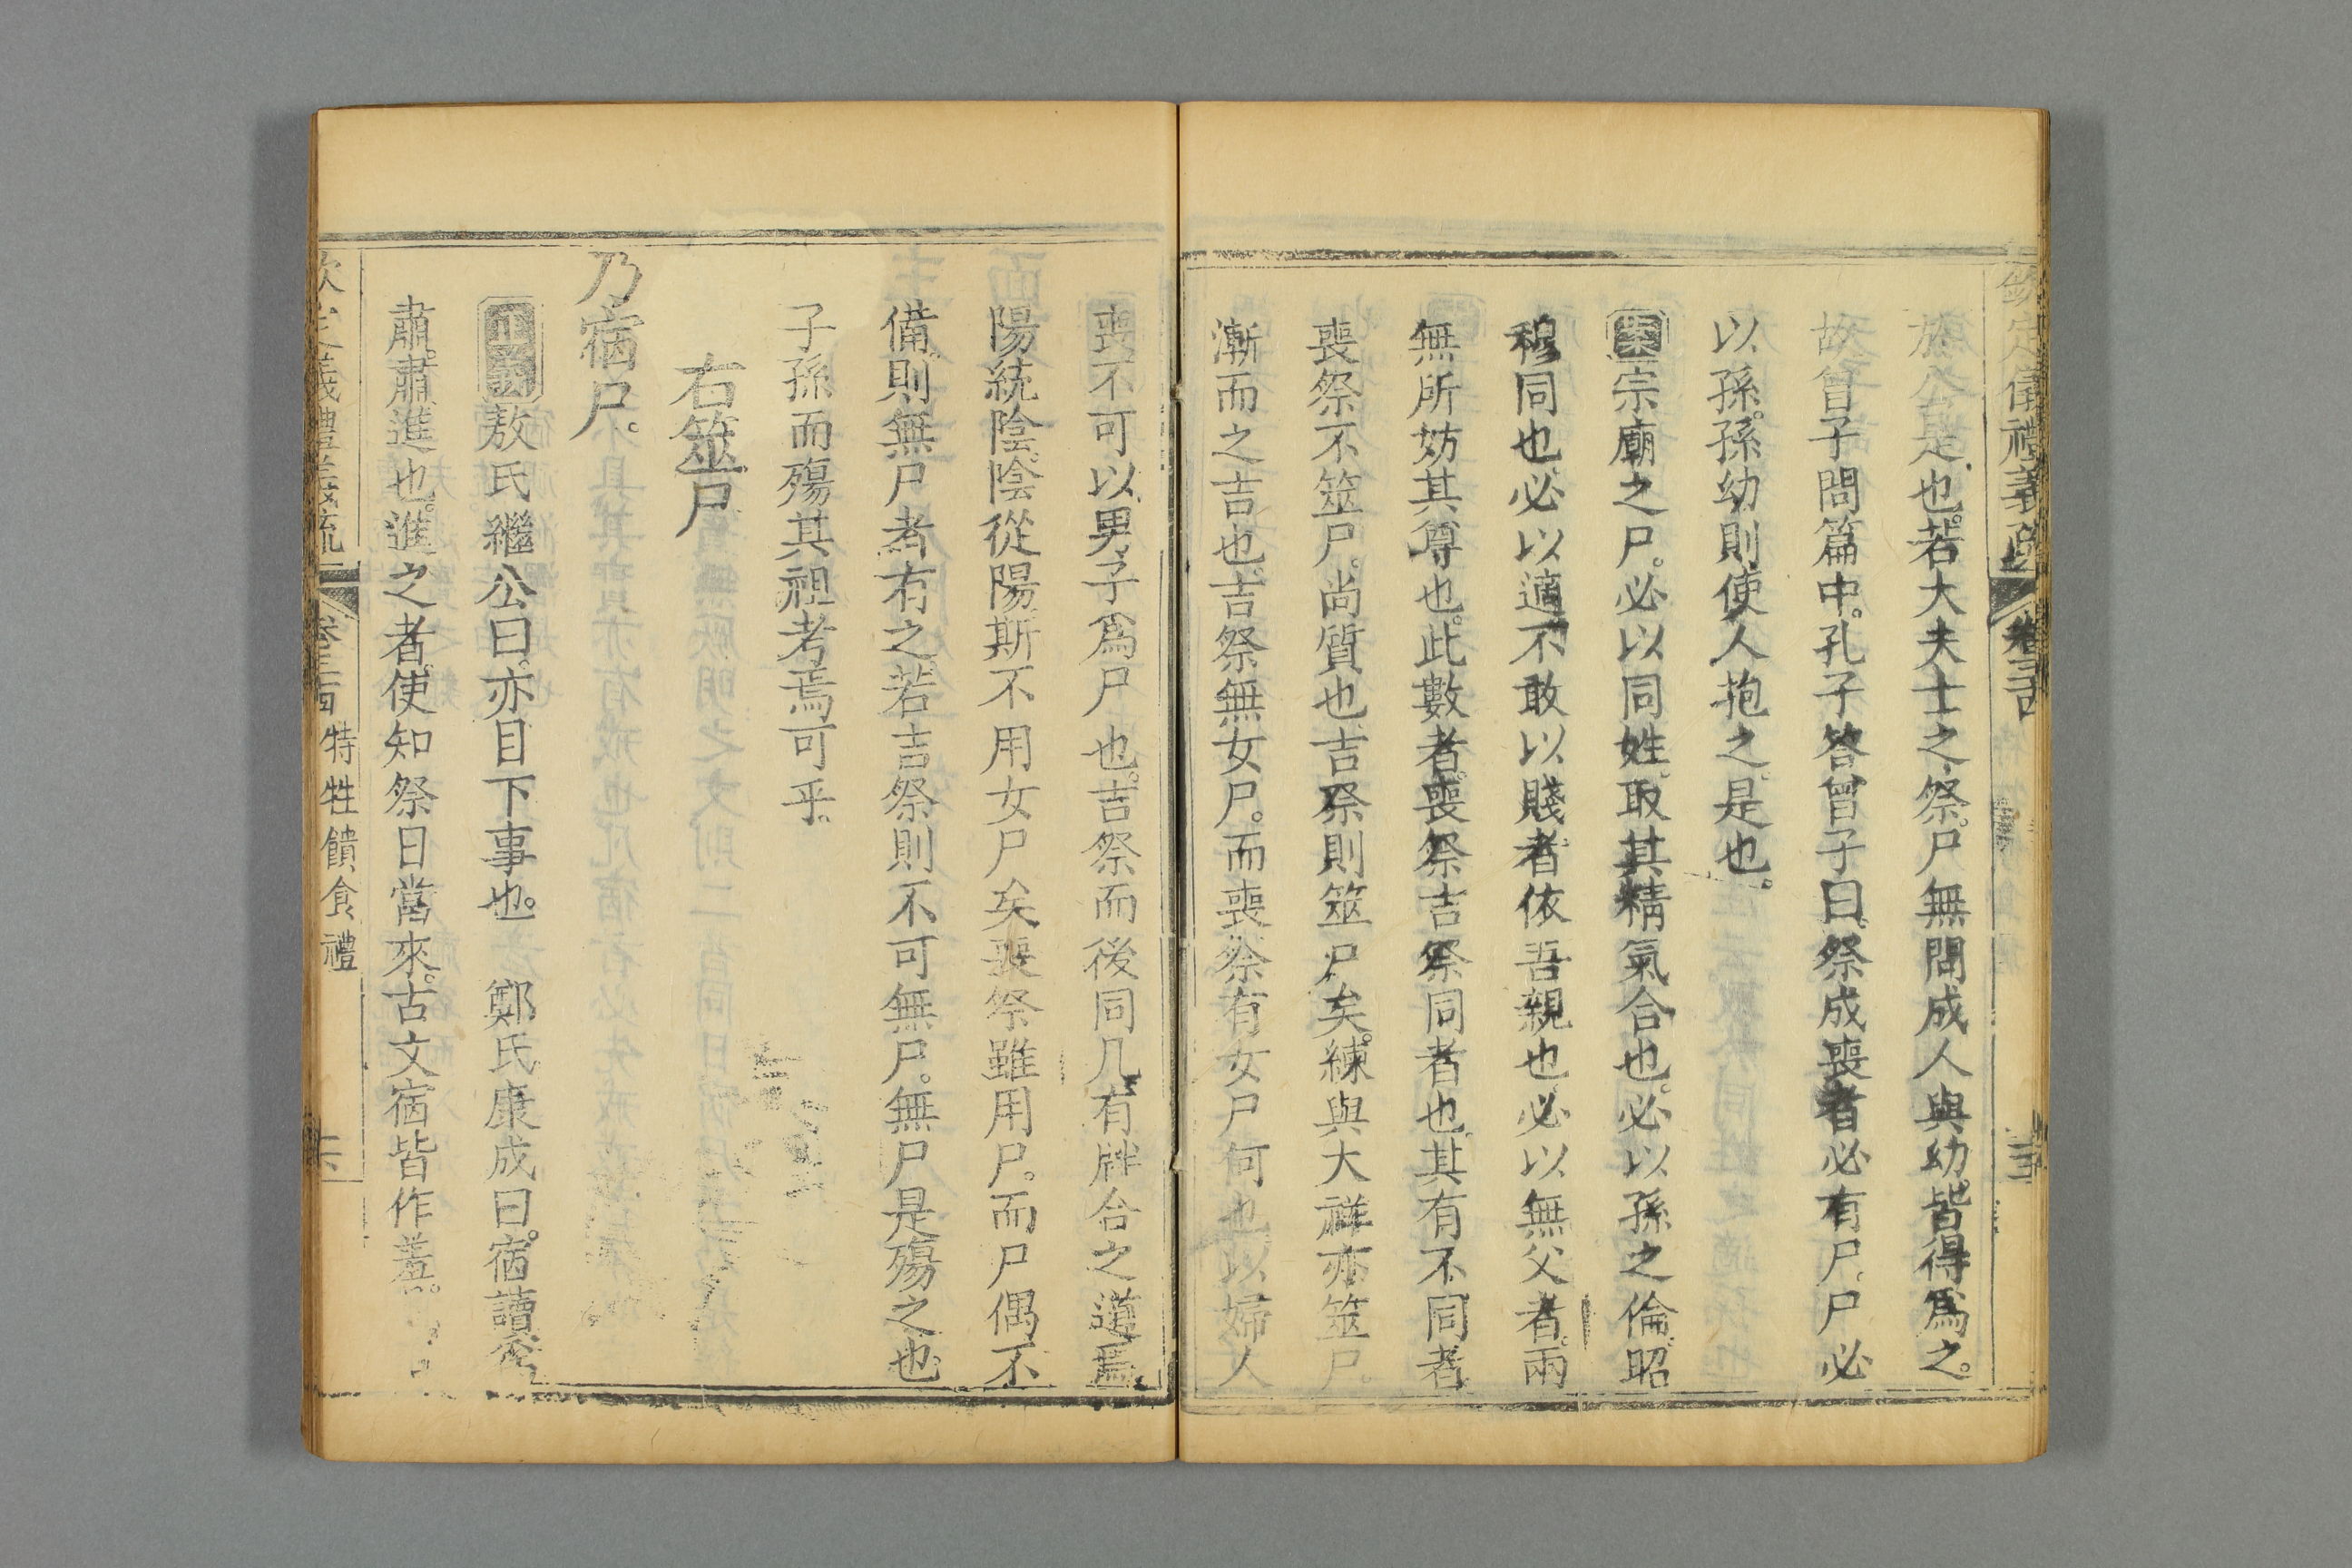 欽定儀禮義疏 卷三
於公是也。若大夫士之祭。尸無問成人與幼。皆得爲之。
故曾子問篇中。孔子答曾子曰。祭成喪者必有尸。尸必
以孫。孫幼則使人抱之。是也。
案宗廟之尸。必以同姓。取其精氣合也。必以孫之倫。昭
穆同也。必以適不敢以賤者依吾親也。必以無父者。兩
無所妨其尊也。此數者。喪祭吉祭同者也。其有不同者。
喪祭不筮尸。尚質也。吉祭則筮尸矣。練與大祥亦筮尸。
漸而之吉也。吉祭無女尸。而喪祭有女尸何也。以婦人
喪不可以男子爲尸也。吉祭而後同几。有牉合之道焉。
陽統陰。陰從陽。斯不用女尸矣。喪祭雖用尸。而尸偶不
備。則無尸者有之。若吉祭則不可無尸。無尸是殤之也。
子孫而殤其祖考焉可乎。
右筮尸
乃宿尸。
正義敖氏繼公曰。亦目下事也。 鄭氏康成曰。宿讀爲
肅。肅進也。進之者。使知祭日當來。古文宿皆作羞。
欽定義禮義疏 卷三 特牲饋食禮